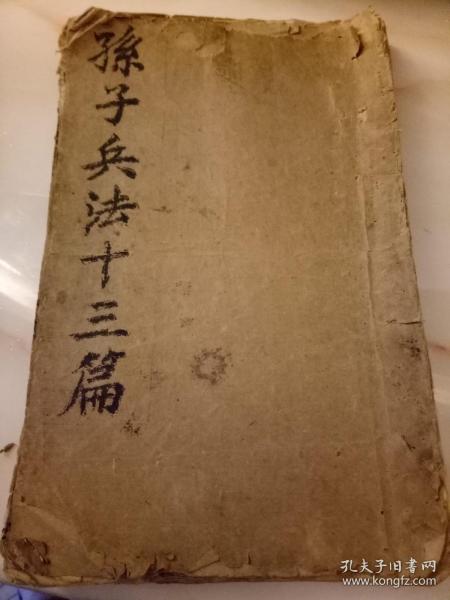 孫子兵法十三篇
孔夫子旧书网
www.kongfz.com